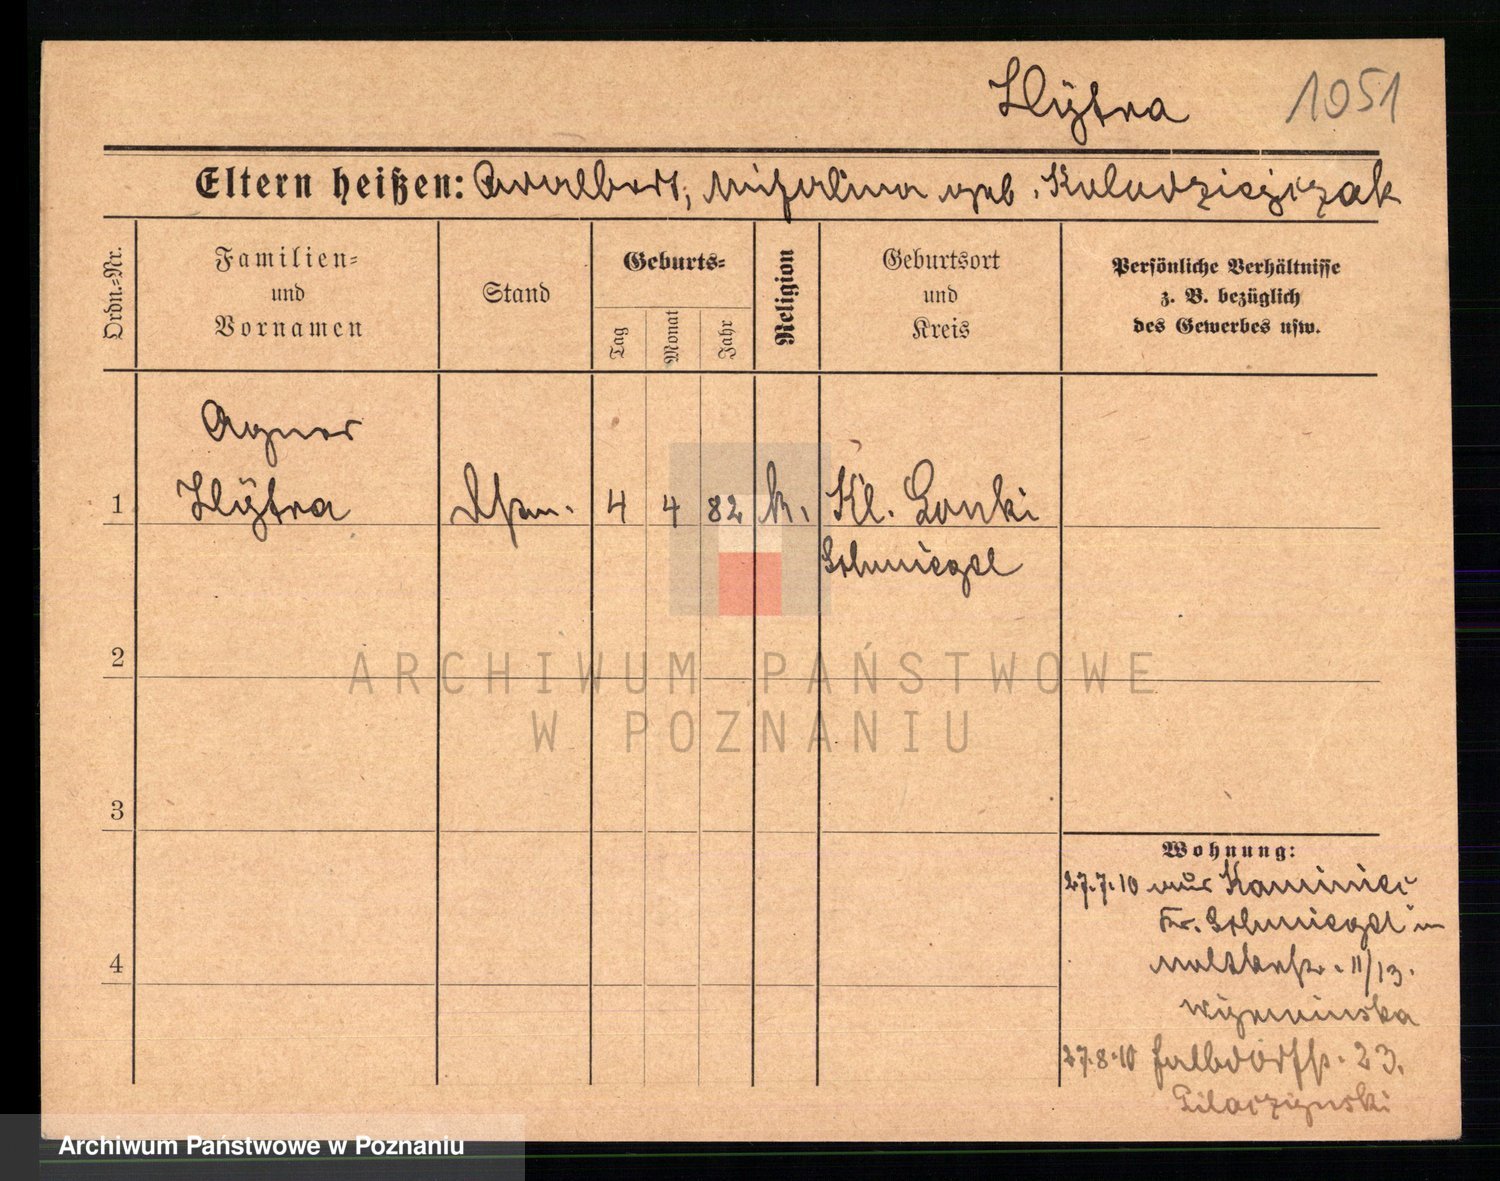 Hÿtra 1051
Eltern heißen: Adalbert, Michalina geb. Kolodziejczak
Ordn.-Nr.
Familien-
und
Vornamen
Stand
Geburts-
Tag
Monat
Jahr
Religion
Geburtsort
und
Kreis
Persönliche Verhältnisse
z. B. bezüglich
des Gewerbes usw.
Agnes
1 Hÿtra 4 4 82 k. Kl. Lonki
Schmiegel
2
ARCHIWUM PAŃSTWOWE
W POZNANIU
3
Wohnung:
27.7.10 aus Kaminiec
Kr. Schmiegel in
4
Moltkestr. 11/13.
27.8.10 23.
Archiwum Państwowe w Poznaniu